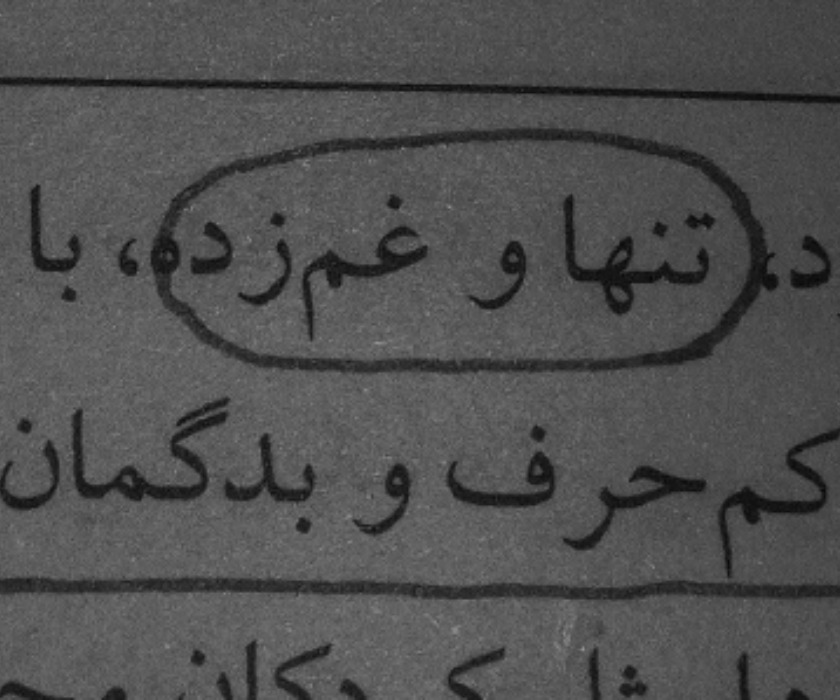 د، تنها و غم‌زده، با
کم حرف و بدگمان